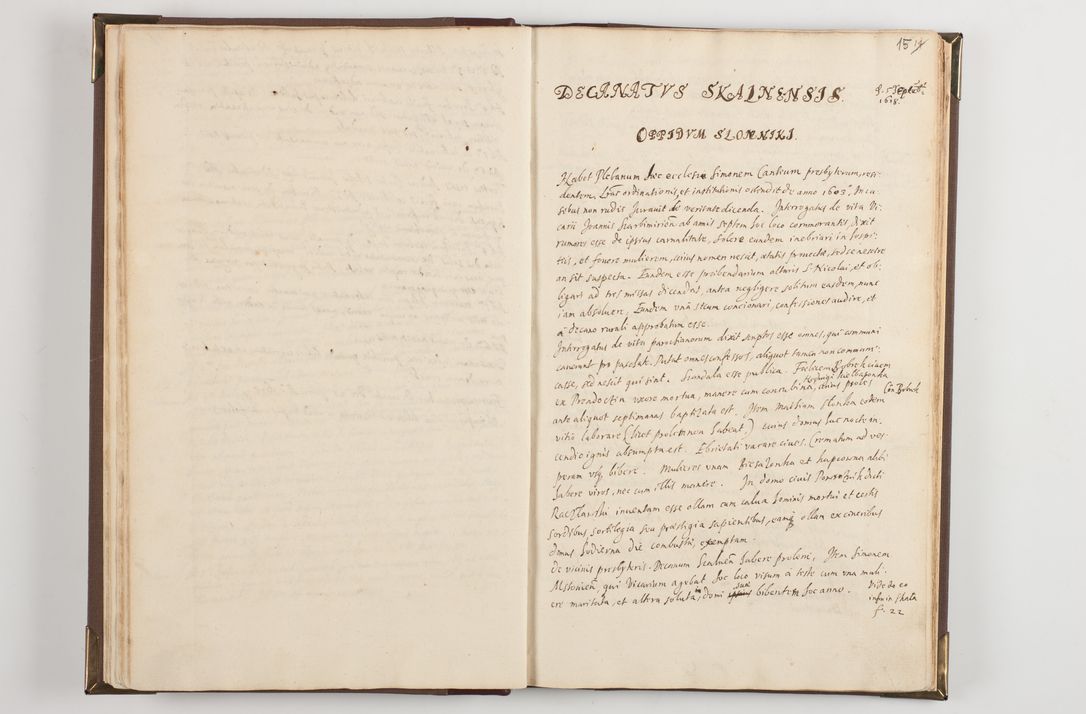 15 14
DECANATVS SKALNENSIS.
8. Septēb.
1618.
OPPIDVM SLOMNIKI.
Habet Plebanum hoc ecclesia Simonem Canticum presbyterum, resi-
dentem. Lrās ordinationis, et institutionis ostendit de anno 1603. In ca-
sibus non rudis. Juravit de veritate dicenda. Interrogatus de vita Vi-
carii Joannis Skarbimirien̄ ab annis septem hoc loco commorantis, dixit
rumores esse de ipsius carnalitate, solere eundem inebriari in hospi-
tiis, et fovere mulierem, cuius nomen nescit, ætatis provectæ, sed se nescire
an sit suspecta. Eundem esse præbendarium altaris S. Nicolai, et ob-
ligari ad tres missas dicendas, antea negligere solitum easdem, nunc
iam absolvere. Eundem unā secum concionari, confessiones audire, et
a decano rurali approbatum esse.
Interrogatus de vita parochianorum dixit scriptos esse omnes, qui communi
carunt pro paschate. Putat omnes confessos, aliquot tamen non communi-
casse, sed nescit qui sint. Scandala esse publica. Foelicem Bobrek civem
ex Prendocin uxore mortua, manere cum concubina, cuius proles
Hedvigi Kielbasonka
Cōn Bobrek
ante aliquot septimanas baptizata est. Item Mathiam Slonka eodem
vitio laborare (licet prolem non habeat) cuius domus hac nocte in-
cendio ignis absumpta est. Ebrietati vacare cives. Crematum ad ves-
peram usq̄ bibere. Mulieres unam et alibi
habere viros, nec cum illis manere. In domo civis dicti
inventam esse ollam cum calva hominis mortui et certis
sordibus, sortilegia seu præstigia sapientibus, eamq̄ ollam ex cineribus
domus hodierna die combustæ, exemptam.
De vicinis presbyteris. Decanum Scalnen̄ habere prolem. Item Simonem
qui Vicarium agebat hoc loco visum a teste cum una muli-
ere maritata, et altera soluta, domi suæ bibentem hoc anno.
Vide de eo
infra in Skala
f. 22